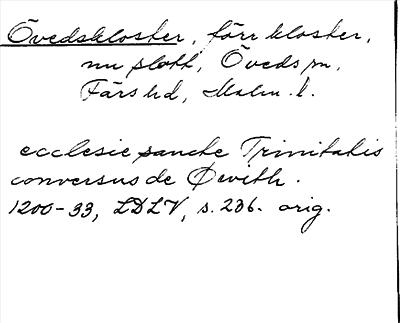 Övedskloster, förr kloster,
nu slott, Öveds sn,
Färs hd, Malm. l.
ecclesie sancte Trinitatis
conversus de Øwith.
1200-33, LDLV, s. 236. orig.